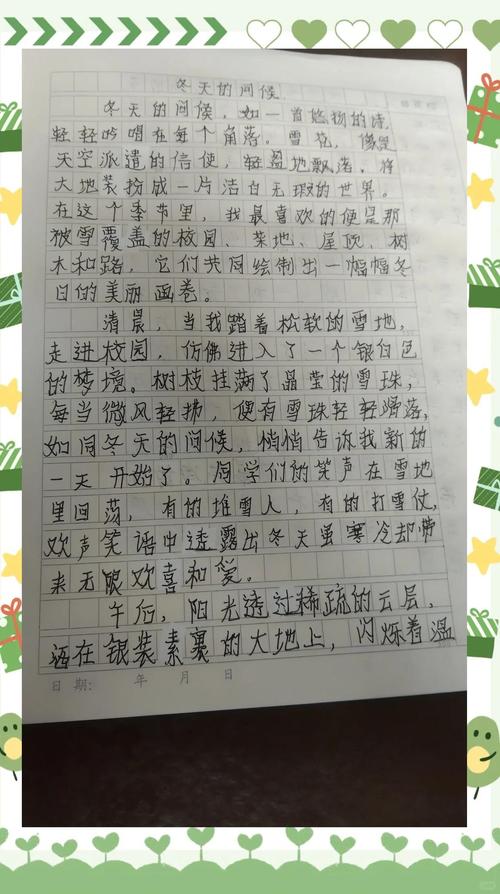 冬天的问候
冬天的问候，如一首悠扬的诗，
轻轻吟唱在每个角落。雪花，像是
天空派遣的信使，轻盈地飘落，将
大地装扮成一片洁白无瑕的世界。
在这个季节里，我最喜欢的便是那
被雪覆盖的校园、菜地、屋顶、树
木和路，它们共同绘制出一幅幅冬
日的美丽画卷。
清晨，当我踏着松软的雪地，
走进校园，仿佛进入了一个银白色
的梦境。树枝挂满了晶莹的雪珠，
每当微风轻拂，便有雪珠轻轻滑落，
如同冬天的问候，悄悄告诉我新的
一天开始了。同学们的笑声在雪地
里回荡，有的堆雪人，有的打雪仗，
欢声笑语中透露出冬天虽寒冷却带
来无限欢喜和爱。
午后，阳光透过稀疏的云层，
洒在银装素裹的大地上，闪烁着温
日期： 年 月 日